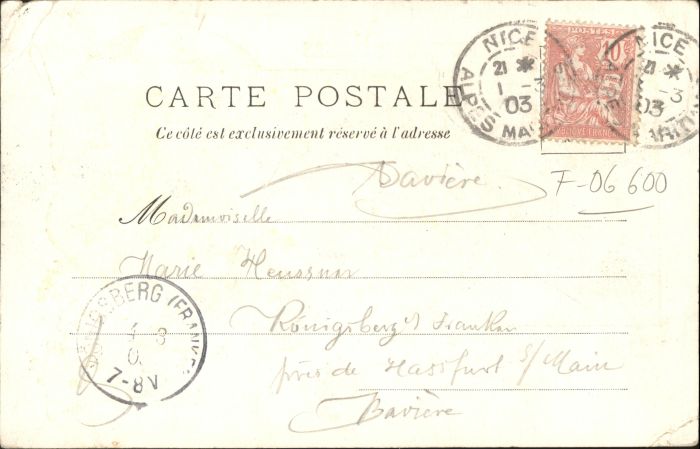 NICE
21 *
1 - 3
03
ALPES MARIT
POSTES
10
RÉPUBLIQUE FRANÇAISE
NICE
21 *
- 3
03
MARIT
CARTE POSTALE
Ce côté est exclusivement réservé à l'adresse
Bavière
F-06 600
Mademoiselle
Marie Heussner
Königsberg i/ Franken
près de Hassfurt s/Main
Bavière
KÖNIGSBERG (FRANKEN
4 3
0
7-8V